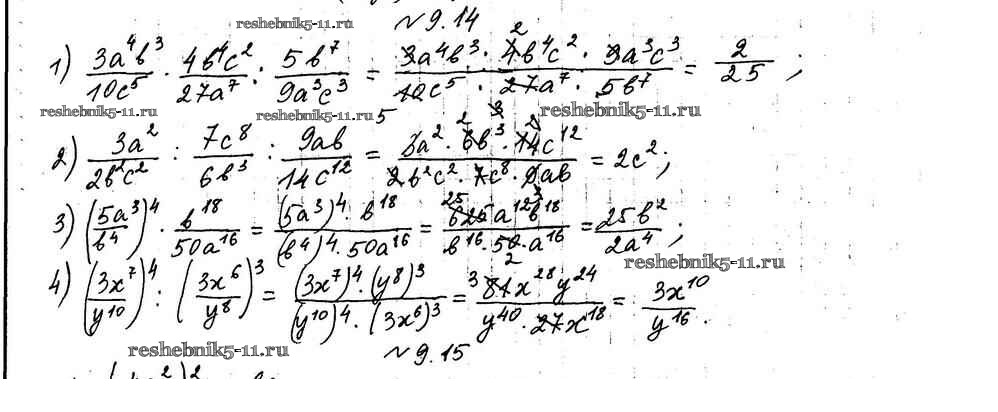 reshebnik5-11.ru
№ 9.14
1) \frac{3a^4b^3}{10c^5} · \frac{4b^4c^2}{27a^7} : \frac{5b^7}{9a^3c^3} = \frac{3a^4b^3 · 4b^4c^2 · 9a^3c^3}{10c^5 · 27a^7 · 5b^7} = \frac{2}{25};
reshebnik5-11.ru reshebnik5-11.ru reshebnik5-11.ru
2) \frac{3a^2}{2b^2c^2} : \frac{7c^8}{6b^3} : \frac{9ab}{14c^{12}} = \frac{3a^2 · 6b^3 · 14c^{12}}{2b^2c^2 · 7c^8 · 9ab} = 2c^2;
3) (\frac{5a^3}{b^4})^4 · \frac{b^{18}}{50a^{16}} = \frac{(5a^3)^4 · b^{18}}{(b^4)^4 · 50a^{16}} = \frac{625a^{12}b^{18}}{b^{16} · 50 · a^{16}} = \frac{25b^2}{2a^4};
reshebnik5-11.ru
4) (\frac{3x^7}{y^{10}})^4 : (\frac{3x^6}{y^8})^3 = \frac{(3x^7)^4 · (y^8)^3}{(y^{10})^4 · (3x^6)^3} = \frac{81x^{28}y^{24}}{y^{40} · 27x^{18}} = \frac{3x^{10}}{y^{16}}.
reshebnik5-11.ru
№ 9.15